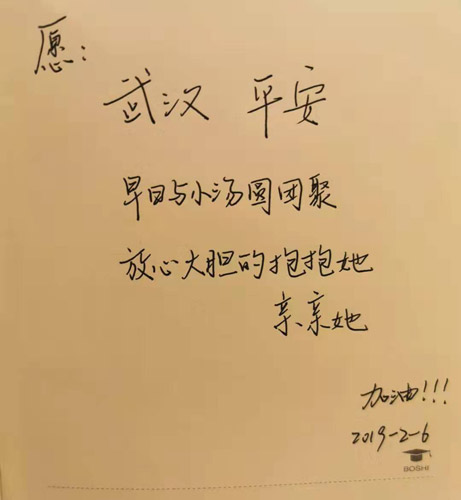 愿：
武汉 平安
早日与小汤圆团聚
放心大胆的抱抱她
亲亲她
加油!!!
2019-2-6
BOSHI